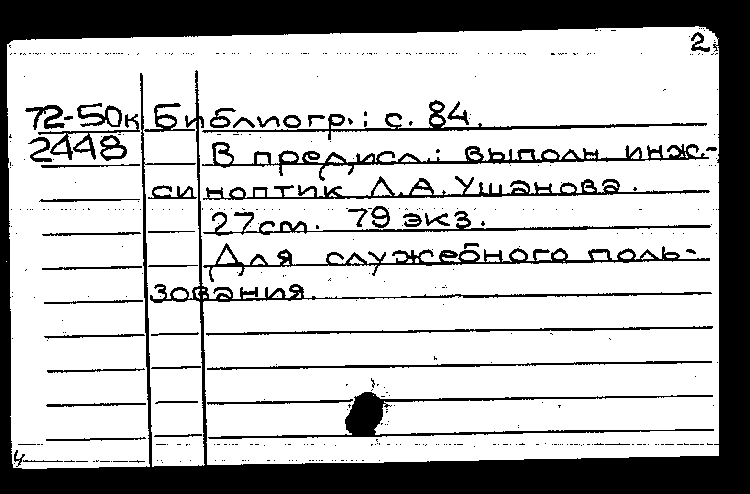 2
72-50к Библиогр.: с. 84.
2448 В предисл.: выполн. инж.-
синоптик Л.А. Ушанова.
27см. 79 экз.
Для служебного поль-
зования.
4